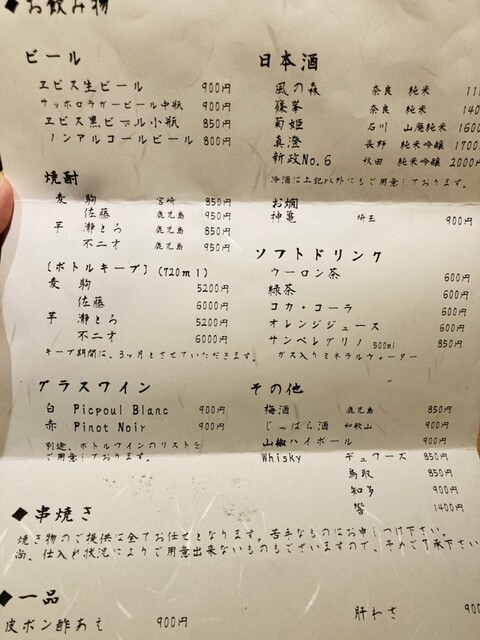 ◆お飲み物
ビール
エビス生ビール 900円
サッポロラガービール中瓶 900円
エビス黒ビール小瓶 850円
ノンアルコールビール 800円
焼酎
麦 駒 宮崎 850円
佐藤 鹿児島 950円
芋 瀞とろ 鹿児島 850円
不二才 鹿児島 950円
[ボトルキープ] (720ml)
麦 駒 5200円
佐藤 6000円
芋 瀞とろ 5200円
不二才 6000円
キープ期間は、3ヶ月とさせていただきます。
グラスワイン
白 Picpoul Blanc 900円
赤 Pinot Noir 900円
別途、ボトルワインのリストを
ご用意しております。
日本酒
風の森 奈良 純米 110
篠峯 奈良 純米 140
菊姫 石川 山廃純米 1600
真澄 長野 純米吟醸 1700
新政No.6 秋田 純米吟醸 2000円
冷酒は上記以外にもご用意しております。
お燗
神亀 埼玉 900円
ソフトドリンク
ウーロン茶 600円
緑茶 600円
コカ・コーラ 600円
オレンジジュース 600円
サンペレグリノ 500ml 850円
ガス入りミネラルウォーター
その他
梅酒 鹿児島 850円
じゃばら酒 和歌山 900円
山椒ハイボール 900円
Whisky デュワーズ 850円
鳥取 850円
知多 900円
響 1400円
◆串焼き
焼き物のご提供は全てお任せとなります。苦手なものはお申しつけ下さい。
尚、仕入れ状況によりご用意出来ないものもございますので、予めご了承下さい
◆一品
皮ポン酢あえ 900円
肝わさ 900